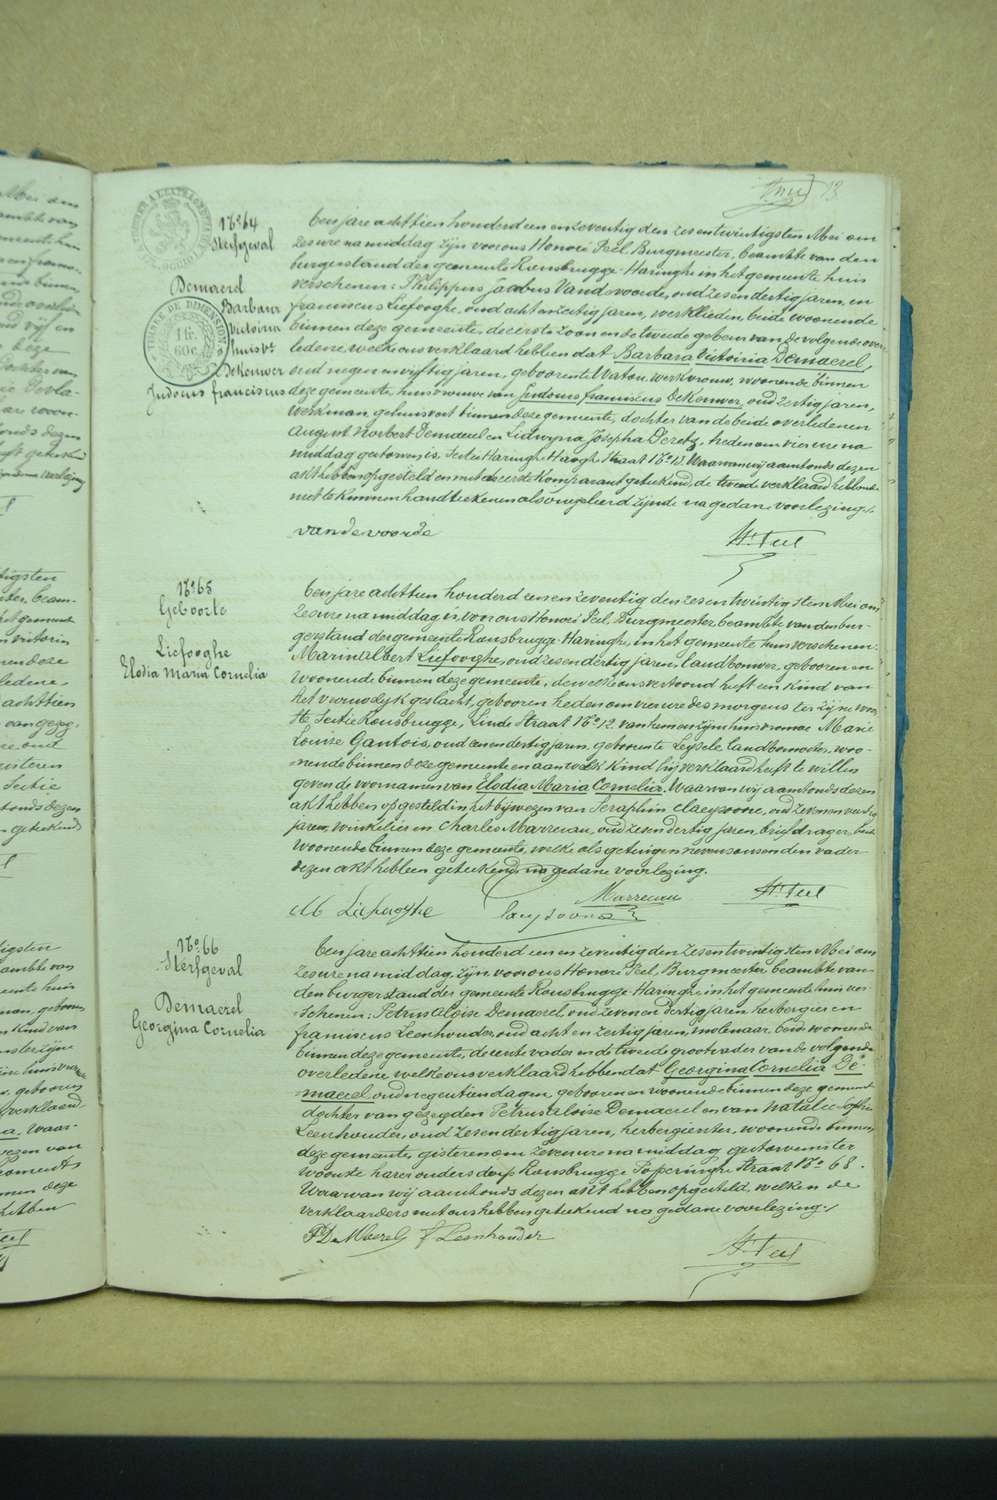 13
N° 64
Sterfgeval
Demaerel
Barbara
Victoria
huisv.
Dekeuwer
Judocus franciscus
TIMBRE DE DIMENSION
1 fr.
60 c.
Eenjare achttien honderd een en zeventig den zesentwintigsten Mei om
zes ure na middag zijn voor ons Honoré Peel Burgmeester, beambte van den
burgerstand der gemeente Rousbrugge-Haringhe in het gemeente huis
verschenen: Philippus Jacobus Vandevoorde, oud zesendertig jaren, en
franciscus Liefooghe, oud achtenzestig jaren, werklieden, beide woonende
binnen deze gemeente, de eerste zoon en de tweede gebuur van de volgende over-
ledene, welke ons verklaard hebben dat Barbara Victoria Demaerel,
oud negen en vijftig jaren, geboorente Watou, werkvrouw, woonende binnen
deze gemeente, huisvrouwe van Judocus franciscus Dekeuwer, oud zestig jaren,
werkman, gehuisvest binnen deze gemeente, dochter van de beide overledenen
August Norbert Demaerel en Lidwyna Josepha Deretz, heden om vier ure na
middag gestorven is, Sectie Haringhe Haeghe Straat N° 13. Waarvan wij aamhonds dezen
akt hebben opgesteld en met de eerste komparant geteekend, de tweede verklaard hebbende
niet te kunnen handteekenen als ongeleerd zijnde na gedane voorlezing.
vandevoorde
Hré Peel
N° 65
Geboorte
Liefooghe
Elodia Maria Cornelia
Eenjare achttien honderd een en zeventig den zesentwintigsten Mei om
zes ure na middag is voor ons Honoré Peel, Burgmeester beambte van den bur-
gerstand der gemeente Rousbrugge-Haringhe, in het gemeente huis verschenen:
Marin albert Liefooghe, oud zesendertig jaren, landbouwer, gebooren en
woonende binnen deze gemeente, dewelke ons vertoond heeft een kind van
het vrouwelijk geslacht, gebooren heden om vier ure des morgens ter zijne woon-
ste Sectie Rousbrugge, Linde Straat N° 12. van hem en zijne huisvrouwe Marie
Louise Gantois, oud een en dertig jaren, geboorente Leysele landbouwster, woo-
nende binnen deze gemeente en aan welk kind hij verklaard heeft te willen
geven de voornamen van Elodia Maria Cornelia. Waarvan wij aamhonds dezen
akt hebben opgesteld in het bijwezen van Seraphin Claeysoone, oud zevenenveertig
jaren, winkelier en Charles Marrecau, oud zesendertig jaren, briefdrager, beide
woonende binnen deze gemeente, welke als getuigen nevens ons en den vader
dezen akt hebben geteekend na gedane voorlezing.
M Liefooghe
Claeysoone
Marrecau
Hré Peel
N° 66
Sterfgeval
Demaerel
Georgina Cornelia
Eenjare achttien honderd een en zeventig den zesentwintigsten Mei om
zes ure na middag, zijn voor ons Honoré Peel, Burgmeester beambte van-
den burgerstand der gemeente Rousbrugge-Haringhe, in het gemeente huis ver-
schenen: Petrus Aloise Demaerel, oud zeven en dertig jaren, herbergier en
franciscus Leenhouder, oud acht en zestig jaren, molenaar beide woonende
binnen deze gemeente, de eerste vader en de tweede grootvader van de volgende
overledene welke ons verklaard hebben dat Georgina Cornelia De-
maerel oud negentien dagen, gebooren en woonende binnen deze gemeente
dochter van gezegden Petrus Aloise Demaerel en van Natalie Sophie
Leenhouder, oud zesendertig jaren, herbergierster, woonende binnen
deze gemeente, gisteren om zeven ure na middag gestorven is ter
woonste harer ouders dorp Rousbrugge Poperinghe Straat N° 68.
Waarvan wij aamhonds dezen akt hebben opgesteld, welken de
verklaarders met ons hebben geteekend na gedane voorlezing.
P DeMaerel
f Leenhouder
Hré Peel